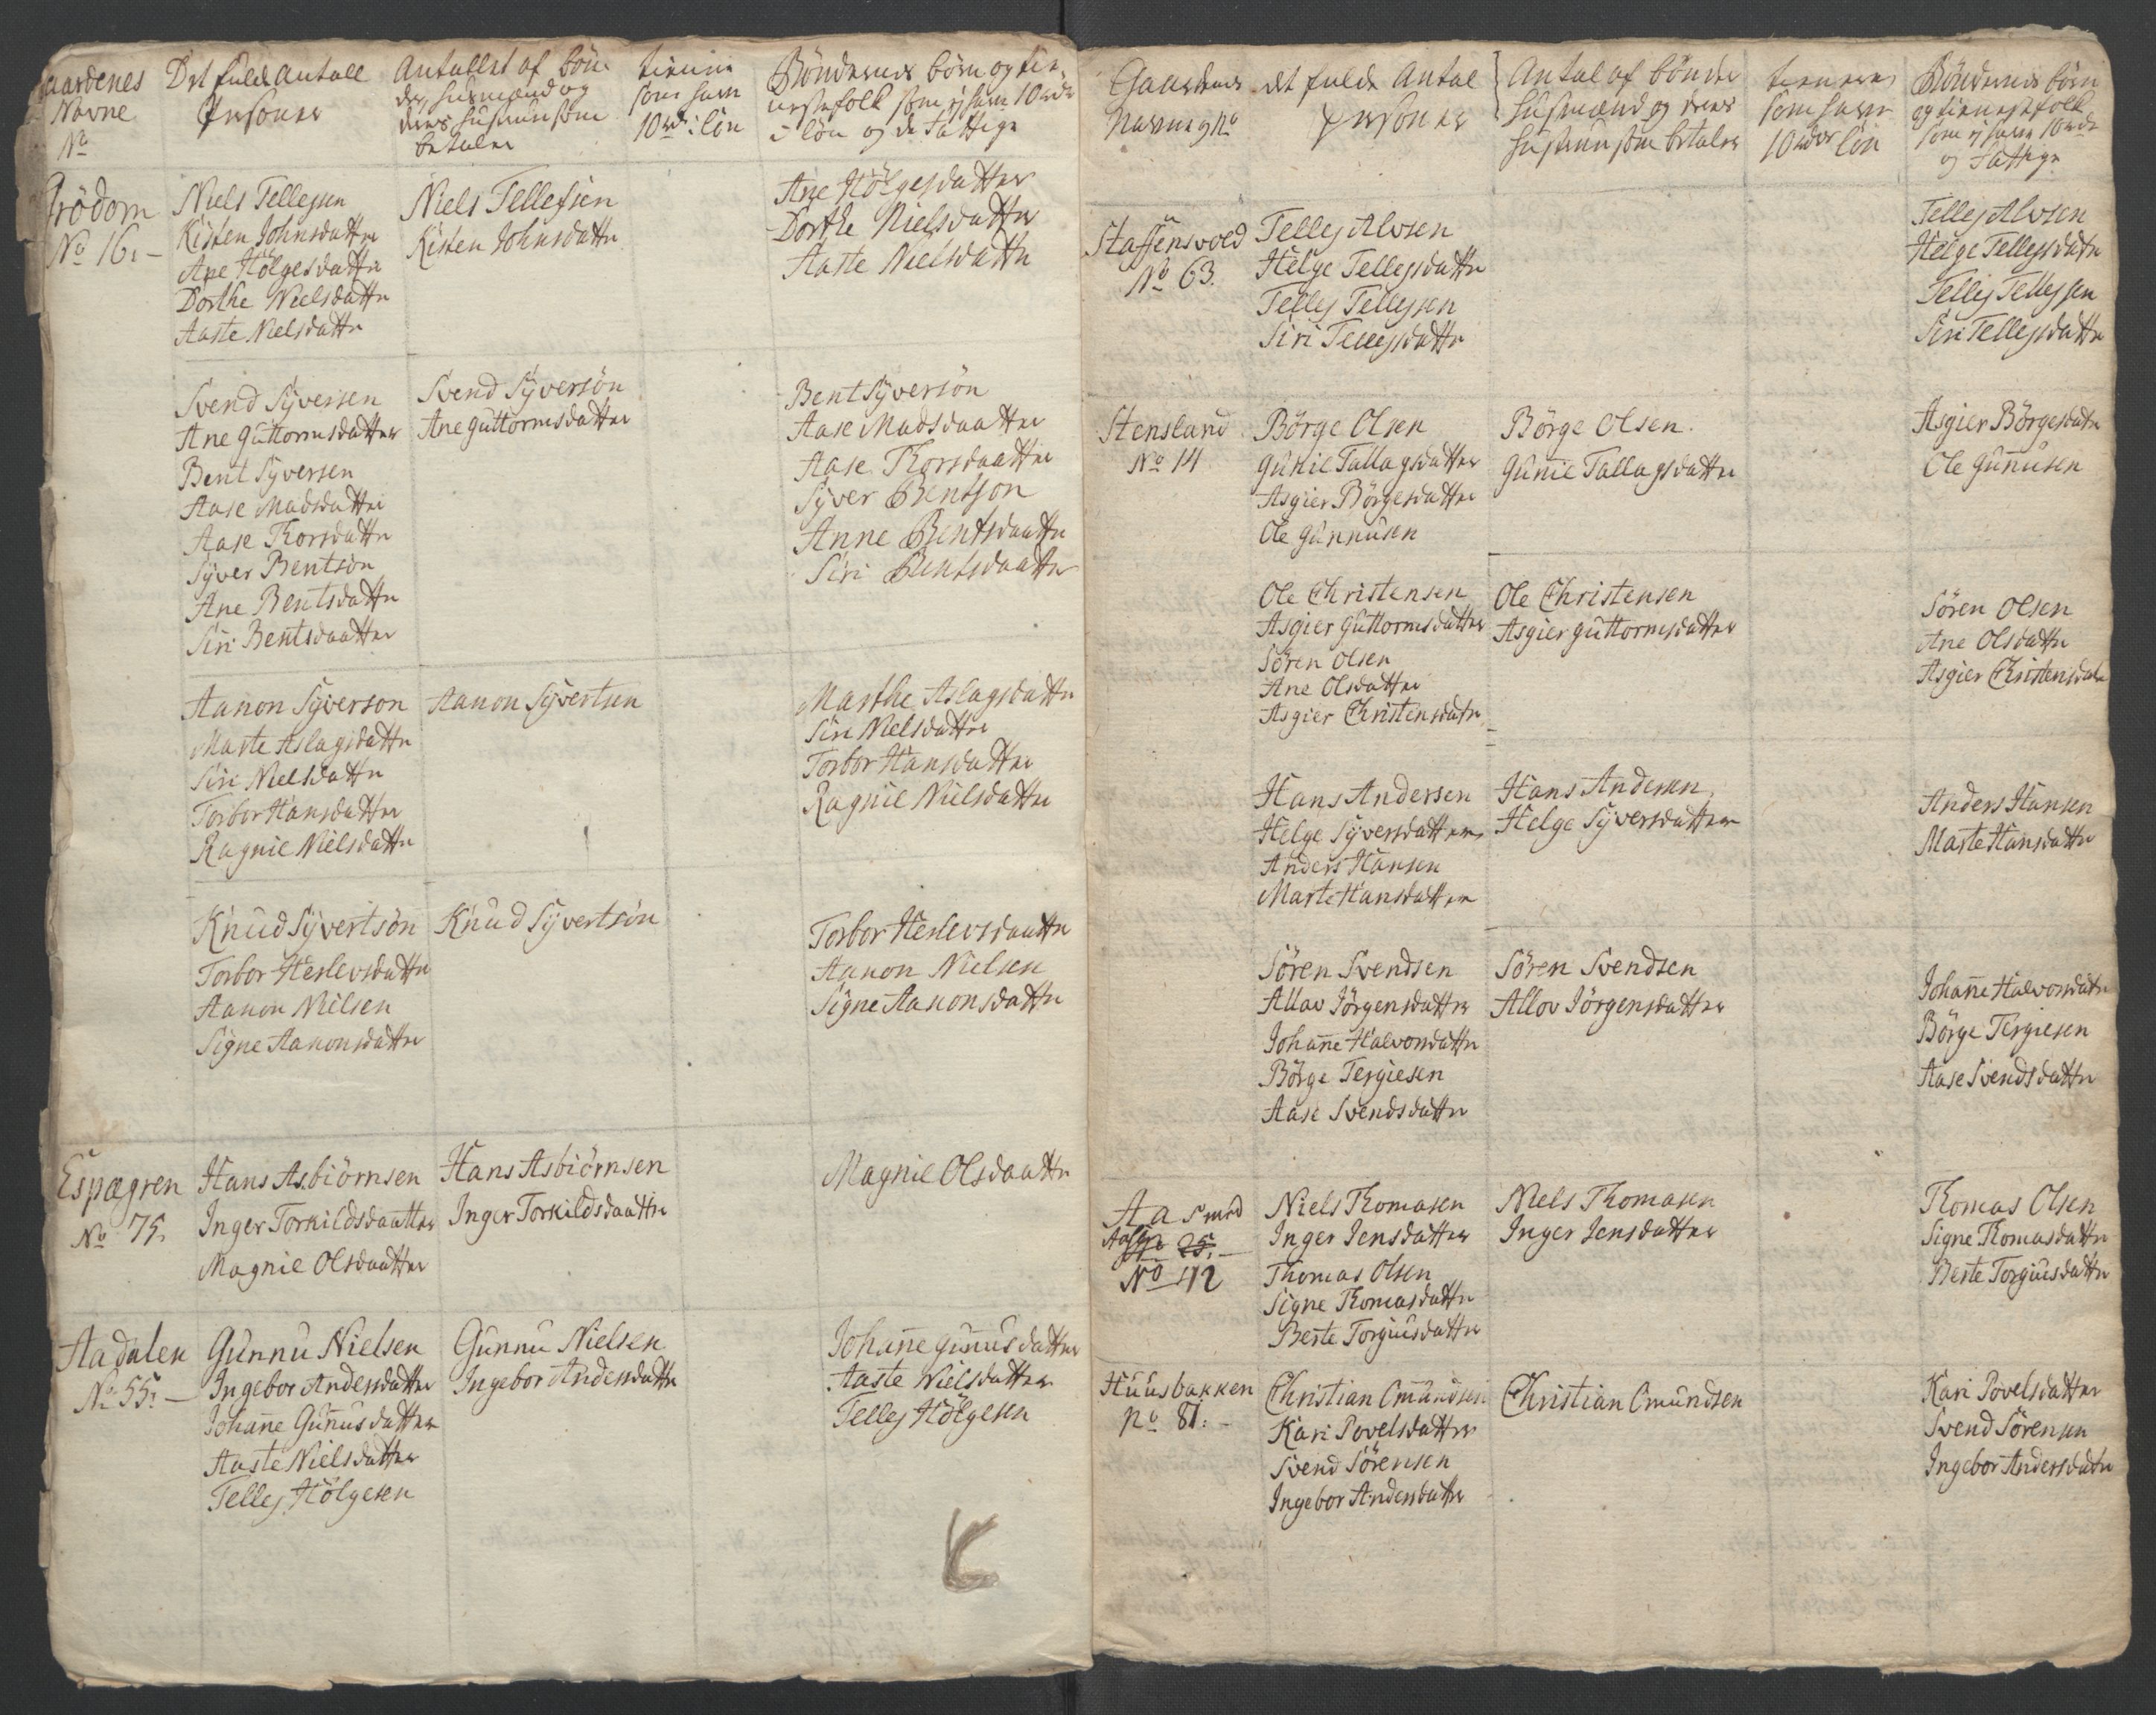 aardenes
Navne
No
Det fulde Antall
Personer
Antallet af bön
der, husmænd og
deres hustruer som
betaler
som haver
10 rdr: lön
Böndernes börn og tie-
nestefolk som ej haver 10 rdr
i lön og de Fattige
Frödom
No 16. –
Niels Tellefsen
Kisten Johnsdatter
Ane Hölgesdatter
Dorthe Nielsdatter
Aaste Nielsdatter
Niels Tellefsen
Kisten Johnsdatter
Ane Hölgesdatter
Dorthe Nielsdatter
Aaste Nielsdatter
Svend Syversen
Ane Guttormsdatter
Bent Syversen
Aase Madsdatter
Aase Thorsdatter
Syver Bentsön
Ane Bentsdatter
Siri Bentsdaatter
Svend Syversön
Ane Guttormsdatter
Bent Syversön
Aase Madsdaatter
Aase Thorsdaatter
Syver Bentson
Anne Bentsdaatter
Siri Bentsdaatter
Aanon Syverson
Marte Aslagsdatter
Siri Nielsdatter
Torbor Hansdatter
Ragnil Nielsdatter
Aanon Syvertsen
Marthe Aslagsdatter
Siri Nielsdatter
Torbor Hansdatter
Ragnil Nielsdatter
Knud Syvertsön
Torbor Herlevsdatter
Aanon Nielsen
Signe Aanonsdatter
Knud Syvertsön
Torbor Herlevsdaatter
Aanon Nielsen
Signe Aanonsdatter
Espægren
No 75.
Hans Asbiörnsen
Inger Torkildsdaatter
Magnil Olsdaatter
Hans Asbiörnsen
Inger Torkildsdaatter
Magnil Olsdaatter
Aadalen
No 55. –
Gunnu Nielsen
Ingebor Andersdatter
Johanne Gunnusdatter
Aaste Nielsdatter
Tellef Hölgesen
Gunnu Nielsen
Ingebor Andersdatter
Johanne Gunnusdatter
Aaste Nielsdatter
Tellef Hölgesen
Gaardenes
Navne og No
det fulde Antal
Personer
Antal af bönder
husmænd og deres
hustruer som betaler
tienere
som haver
10 rdr lön
Böndernes börn
og tienestefolk
som ej haver 10 rdr
og Fattige
Staffensvoed
No 63.
Tellef Alvsen
Helge Tellefsdatter
Tellef Tellefsen
Siri Tellefsdatter
Tellef Alvsen
Helge Tellefsdatter
Tellef Tellefsen
Siri Tellefsdatter
Stensland
No 14
Börge Olsen
Gunil Tallagsdatter
Asgier Börgesdatter
Ole Gunnusen
Börge Olsen.
Gunil Tallagsdatter
Asgier Börgesdatr
Ole Gunnusen
Ole Christensen
Asgier Guttormsdatter
Sören Olsen
Ane Olsdatter
Asgier Christensdatr
Ole Christensen
Asgier Guttormsdatter
Sören Olsen
Ane Olsdatter
Asgier Christensdatr
Hans Andersen
Helge Syversdatter
Anders Hansen
Marte Hansdatter
Hans Andersen
Helge Syversdatter
Anders Hansen
Marte Hansdatter
Sören Svendsen
Allov Jörgensdatter
Johanne Halvorsdatter
Börge Tergiesen
Aase Svendsdatter
Sören Svendsen
Allov Jörgensdatter
Johanne Halvorsdatr
Börge Tergiesen
Aase Svendsdatter
Aas med
No 112
Niels Thomasen
Inger Jensdatter
Thomas Olsen
Signe Thomasdatter
Berte Torgiusdatter
Niels Thomasen
Inger Jensdatter
Thomas Olsen
Signe Thomasdatter
Berte Torgiusdatter
Huusbakken
No 81. –
Christian Omundsen
Kari Povelsdatter
Svend Sörensen
Ingebor Andersdatter
Christian Omundsen
Kari Povelsdatter
Svend Sörensen
Ingebor Andersdatr